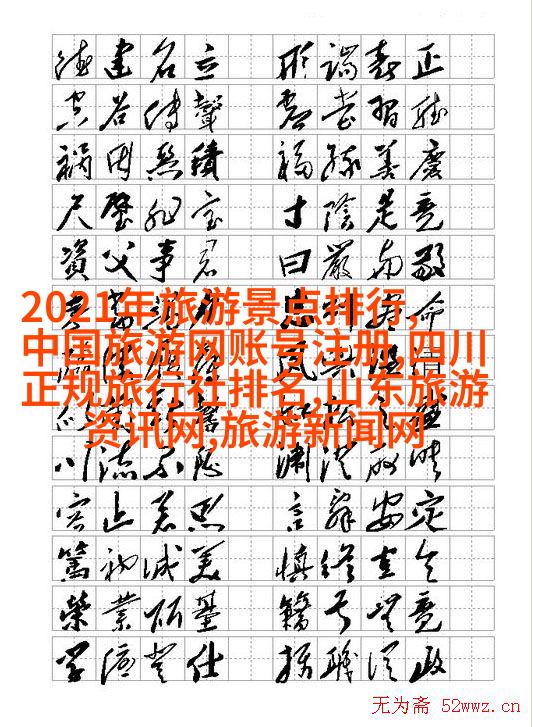 德建名立 形端表正
空谷傳聲 虛堂習聽
禍因惡積 福緣善慶
尺璧非宝 寸陰是竞
資父事君 曰嚴与敬
2021年旅游景点排行,
中国旅游网账号注册,四川
正规旅行社排名,山东旅游
资讯网,旅游新闻网
川流不息 淵澄取映
容止若思 言辭安定
篤初诚美 慎终宜令
榮業所基 籍甚无竟
学優登仕 攝職従政
无为斋 52wwz.cn